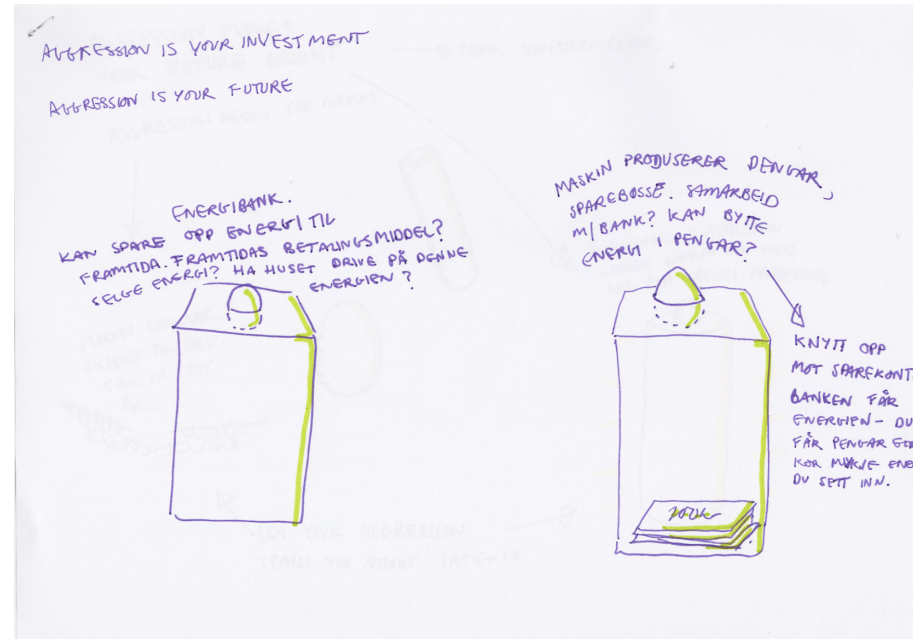 AGGRESSION IS YOUR INVESTMENT
AGGRESSION IS YOUR FUTURE
ENERGIBANK.
KAN SPARE OPP ENERGI TIL
FRAMTIDA. FRAMTIDAS BETALINGSMIDDEL?
SELGE ENERGI? HA HUSET DRIVE PÅ DENNE
ENERGIEN?
MASKIN PRODUSERER PENGAR,
SPAREBØSSE. SAMARBEID
M/BANK? KAN BYTTE
ENERGI I PENGAR?
KNYTT OPP
MOT SPAREKONT
BANKEN FÅR
ENERGIEN - DU
FÅR PENGAR FOR
KOR MYKJE ENE
DU SETT INN.